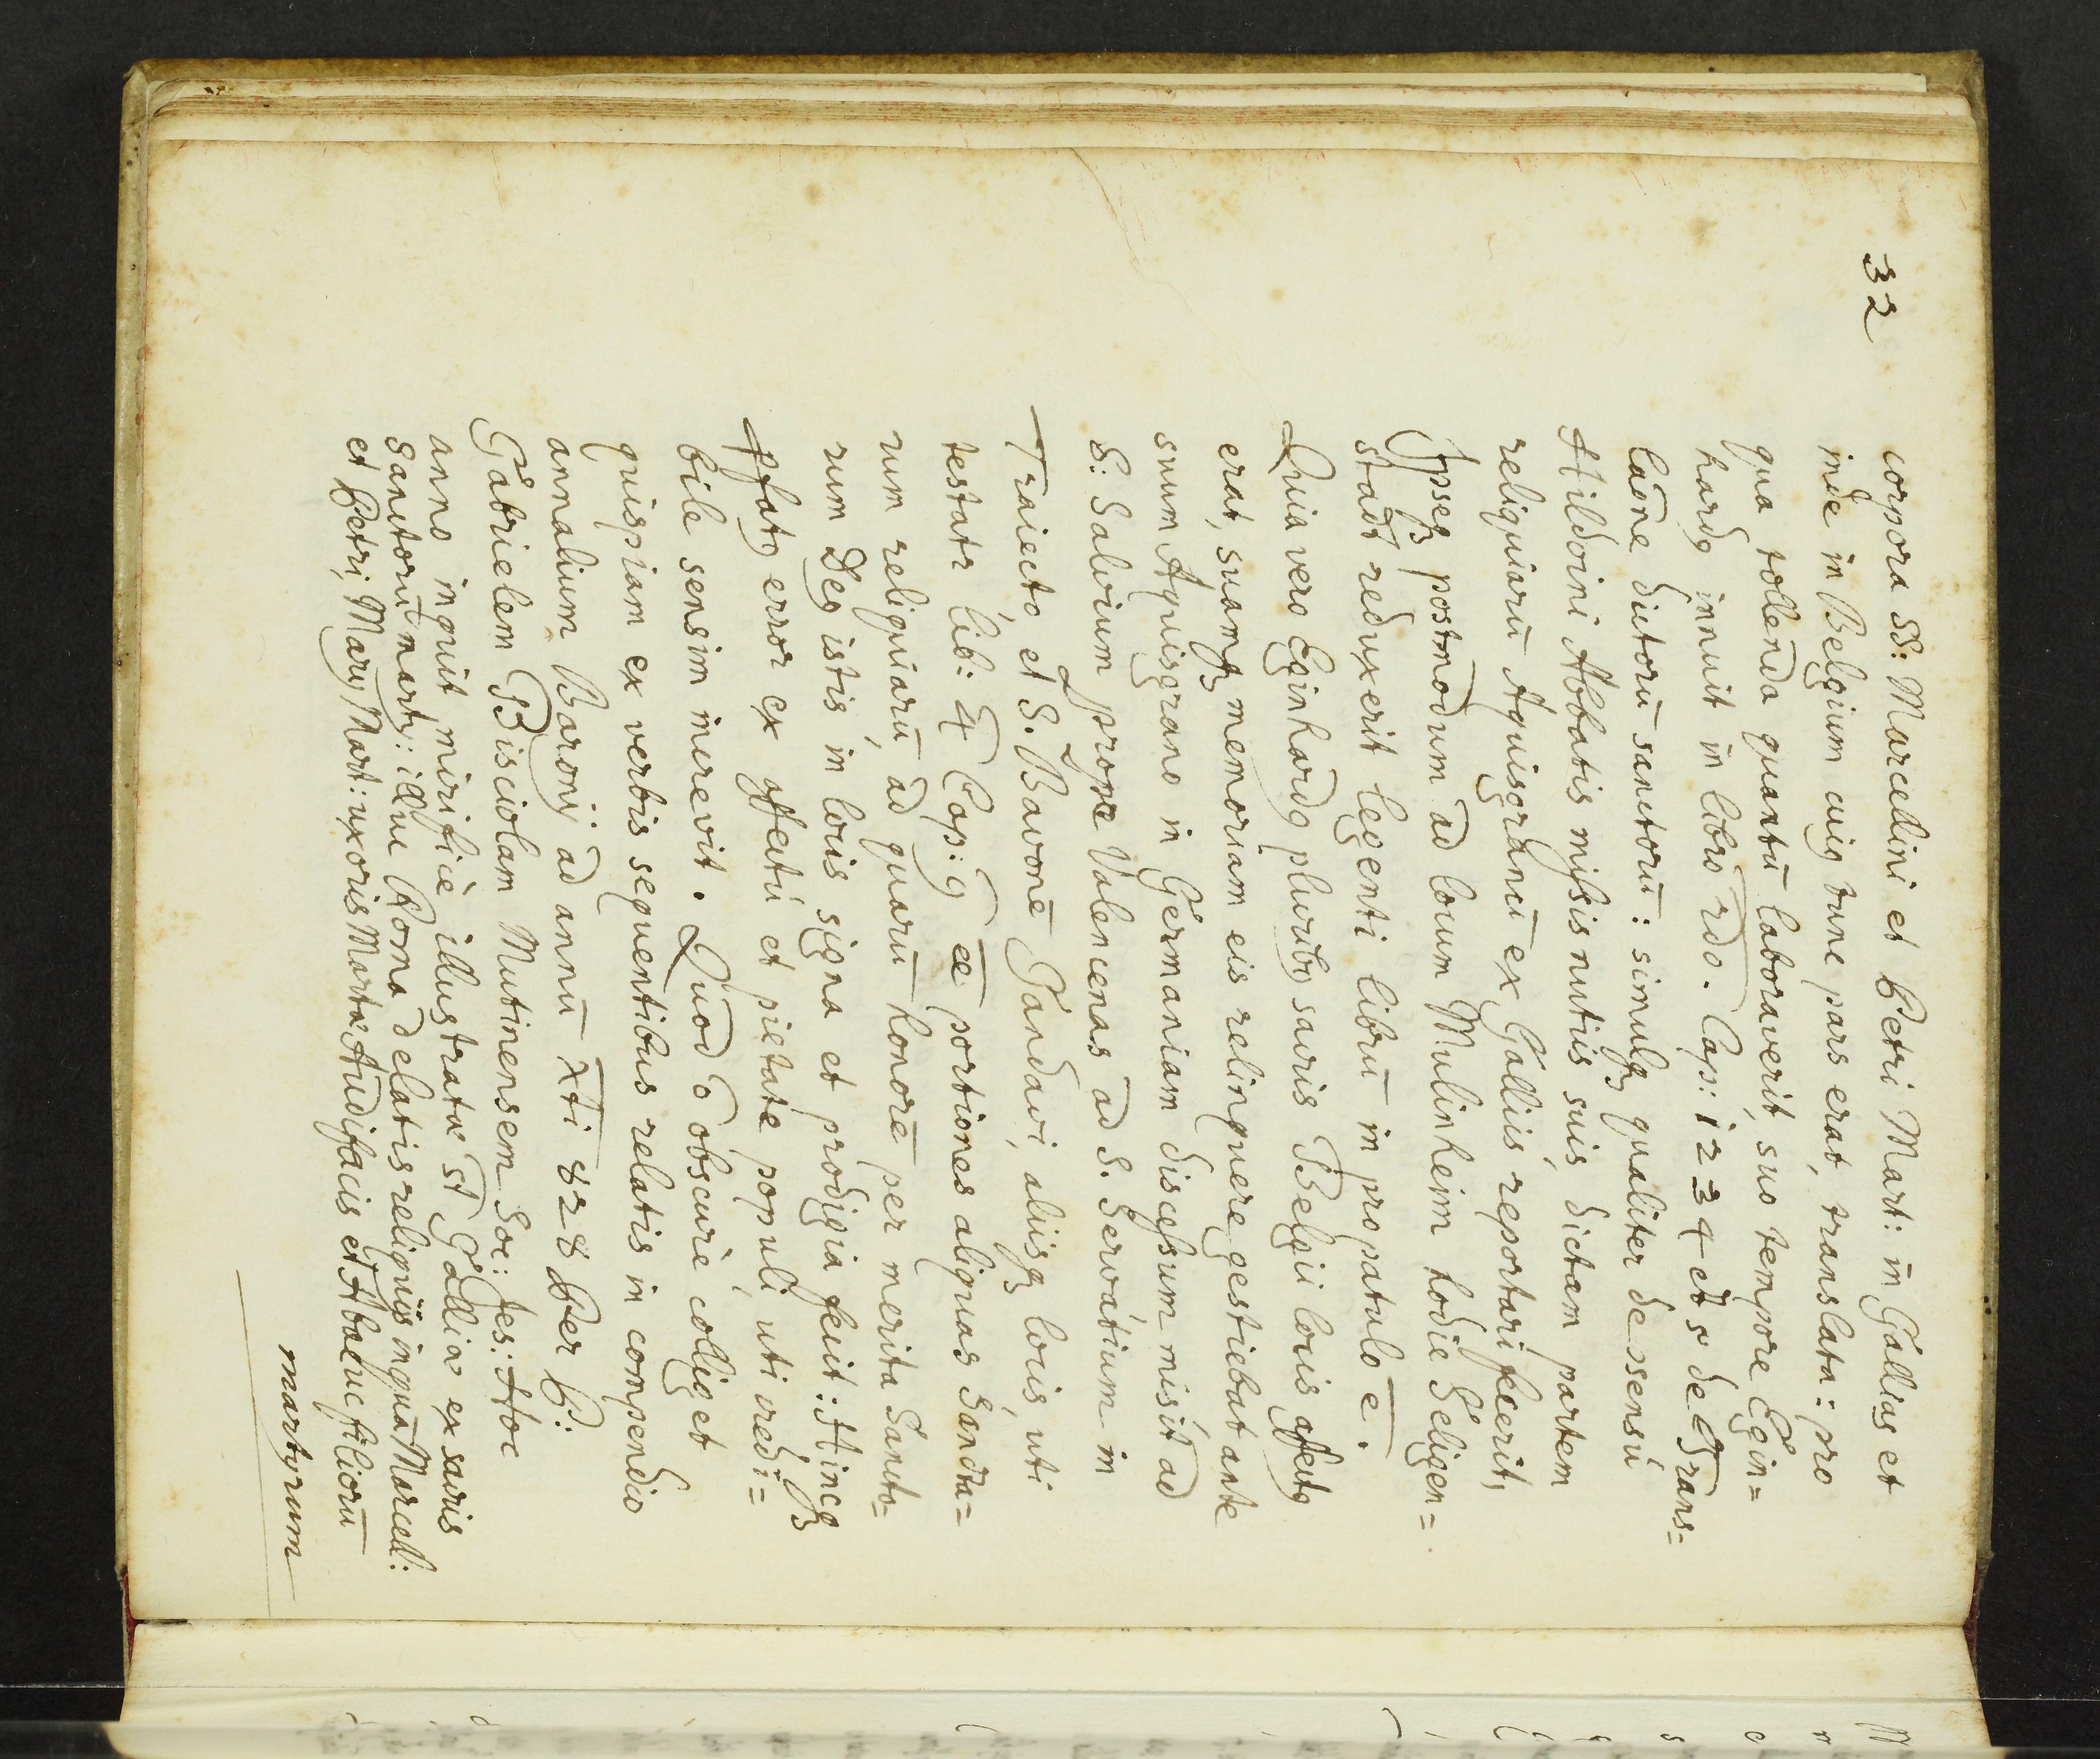 32
corpora SS: Marcellini et Petri Mart: in Gallias et
inde in Belgium cuiꝰ tunc pars erat, translata: pro
qua tollenda quantū laboraverit, suo tempore Egin=
hardꝰ innuit in libro 2do. Cap: 1 2 3 4 et 5 de Trans=
laōne dictorū sanctorū: simulqꝫ qualiter de ssensú
Hildoini Abbatis missis nutiis suis, dictam partem
reliquiarū Aquisgranū ex Galliis, reportari fecerit,
Ipseqꝫ postmodum ad locum Mulinheim hodie Seligen=
stadt reduxerit legenti librū in propatulo ē.
Quia vero Eginhardꝰ pluribꝰ sacris Belgii locis affectꝰ
erat, suamqꝫ memoriam eis relinquere gestiebat ante
suum Aquisgrano in Germaniam discessum misit ad
S: Salvium prope Valencenas ad S. Servátium in
Traiecto, et S. Bavonē Gandavi, aliisqꝫ locis, uti
testatr lib: 4 Cap: 9 ēē portiones aliquas Sancta=
rum reliquiarū, ad quarū honorē per merita Sancto=
rum Deꝰ istis in locis signa et prodigia fecit: Hincqꝫ
pfatꝰ error ex affectú et pietate populi, uti credi=
bile sensim increvit. Quod ō obscurè colliget
quispiam ex verbis sequentibus relatis in compendio
annalium Baronij ad annū Xti 828 Per P:
Gabrielem Bisciolam Mutinensem Soc: Jes: Hoc
anno inquit mirificè illustratæ st Galliæ ex sacris
Sanctorū marty: illuc Roma delatis reliquiis inqua Marcell:
et Petri, Marij Mart: uxoris Martæ Audifacis et Abacuc filiorū
martyrum